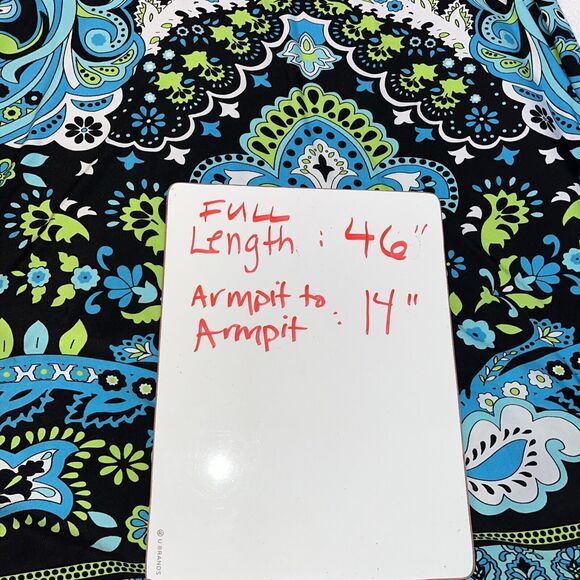 FULL
Length : 46"
Armpit to
Armpit : 14"
U BRANDS